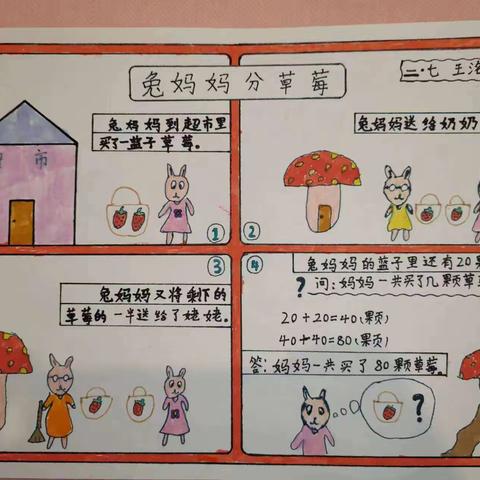 兔妈妈分草莓
二·七 王洛
市
兔妈妈到超市里
买了一篮子草莓。
①
兔妈妈送给奶奶
②
③
兔妈妈又将剩下的
草莓的一半送给了姥姥。
④
兔妈妈的篮子里还有20颗
?问:妈妈一共买了几颗草莓
20+20=40(颗)
40+40=80(颗)
答:妈妈一共买了80颗草莓。
?